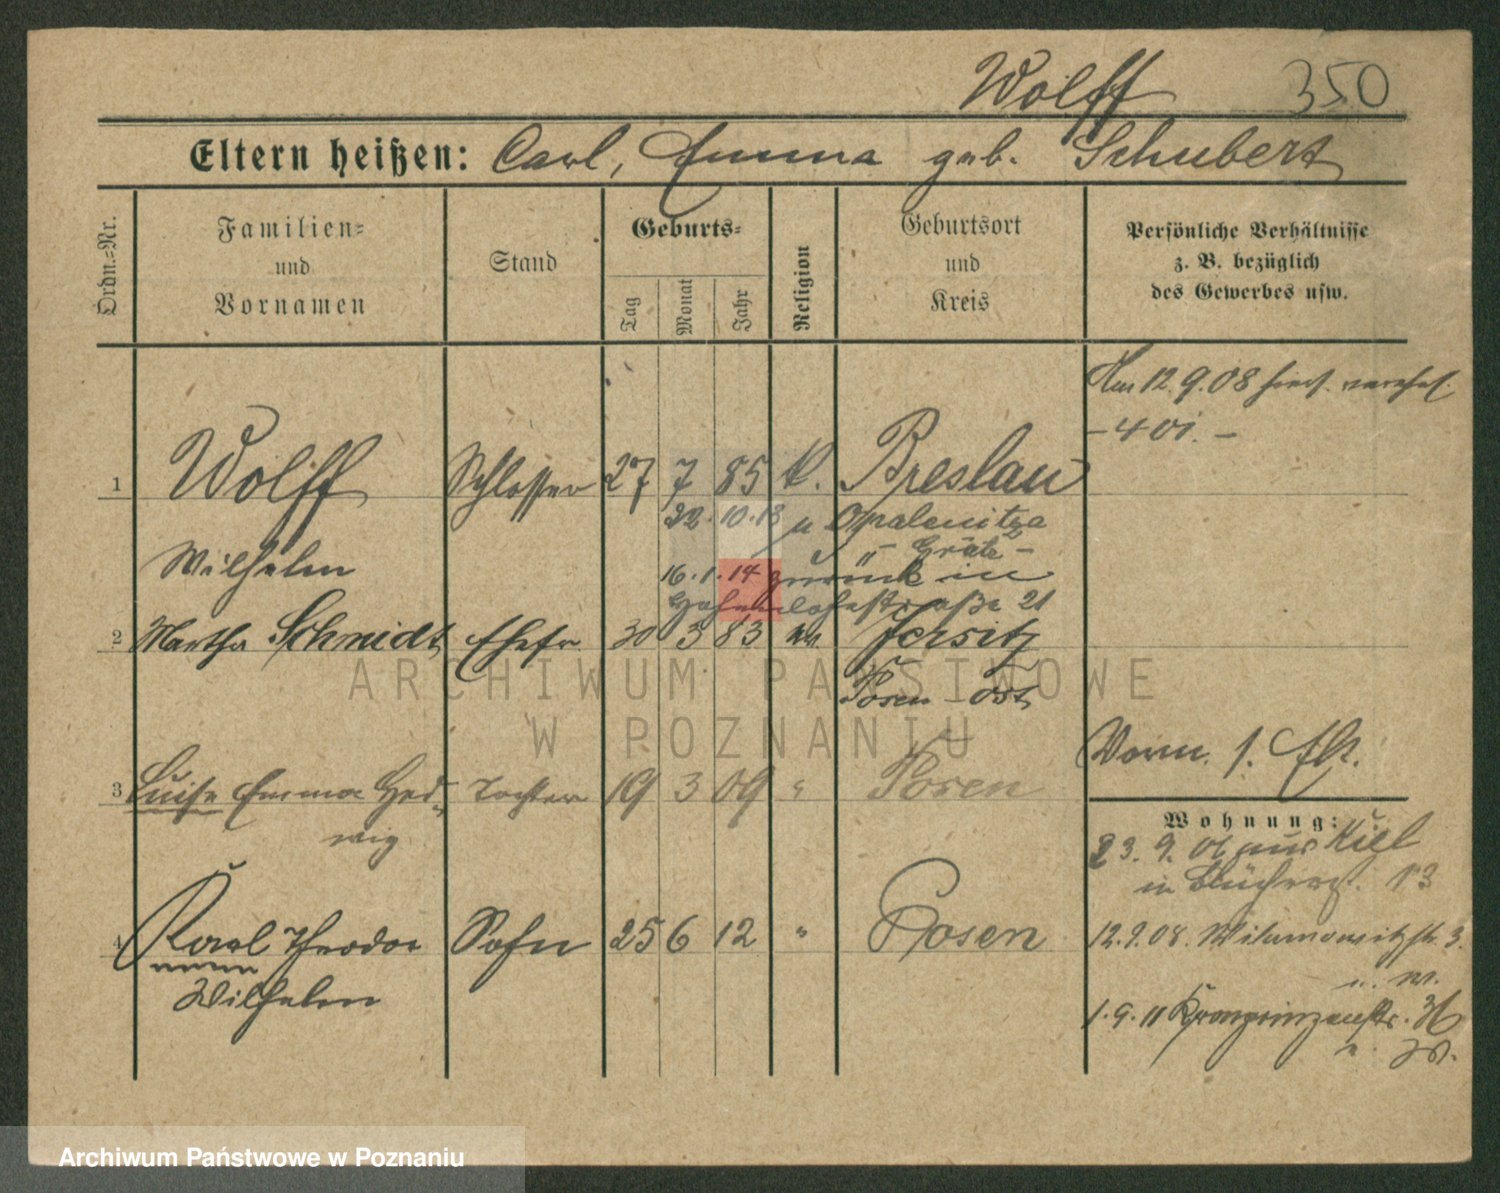 Wolff 350
Eltern heißen: Carl, Emma geb. Schubert
Ordn.=Nr.
Familien=
und
Vornamen
Stand
Geburts=
Tag
Monat
Jahr
Religion
Geburtsort
und
Kreis
Persönliche Verhältnisse
z. B. bezüglich
des Gewerbes usw.
Am 12.9.08 hier verehel.
1 Wolff Schlosser 27 7 85 k. Breslau
22.10.13 n Opalenitza
" Grätz -
Wilhelm
16.1.14 zurück in
Hohenlohestraße 21
2 Martha Schmidt Ehefr. 30 3 83 ev Jersitz
Posen Ost
ARCHIWUM PAŃSTWOWE
W POZNANIU
Vorm. 1. Eh.
3 Luise Emma Hed- Tochter 19 3 09 " Posen
wig
Wohnung:
23. 9. 06 aus Kiel
in Blücherst. 13
4 Karl Theodor Sohn 25 6 12 " Posen
Wilhelm
12.9.08. Wilamowitzstr. 3.
1.9.11 Kronprinzenstr.
Archiwum Państwowe w Poznaniu